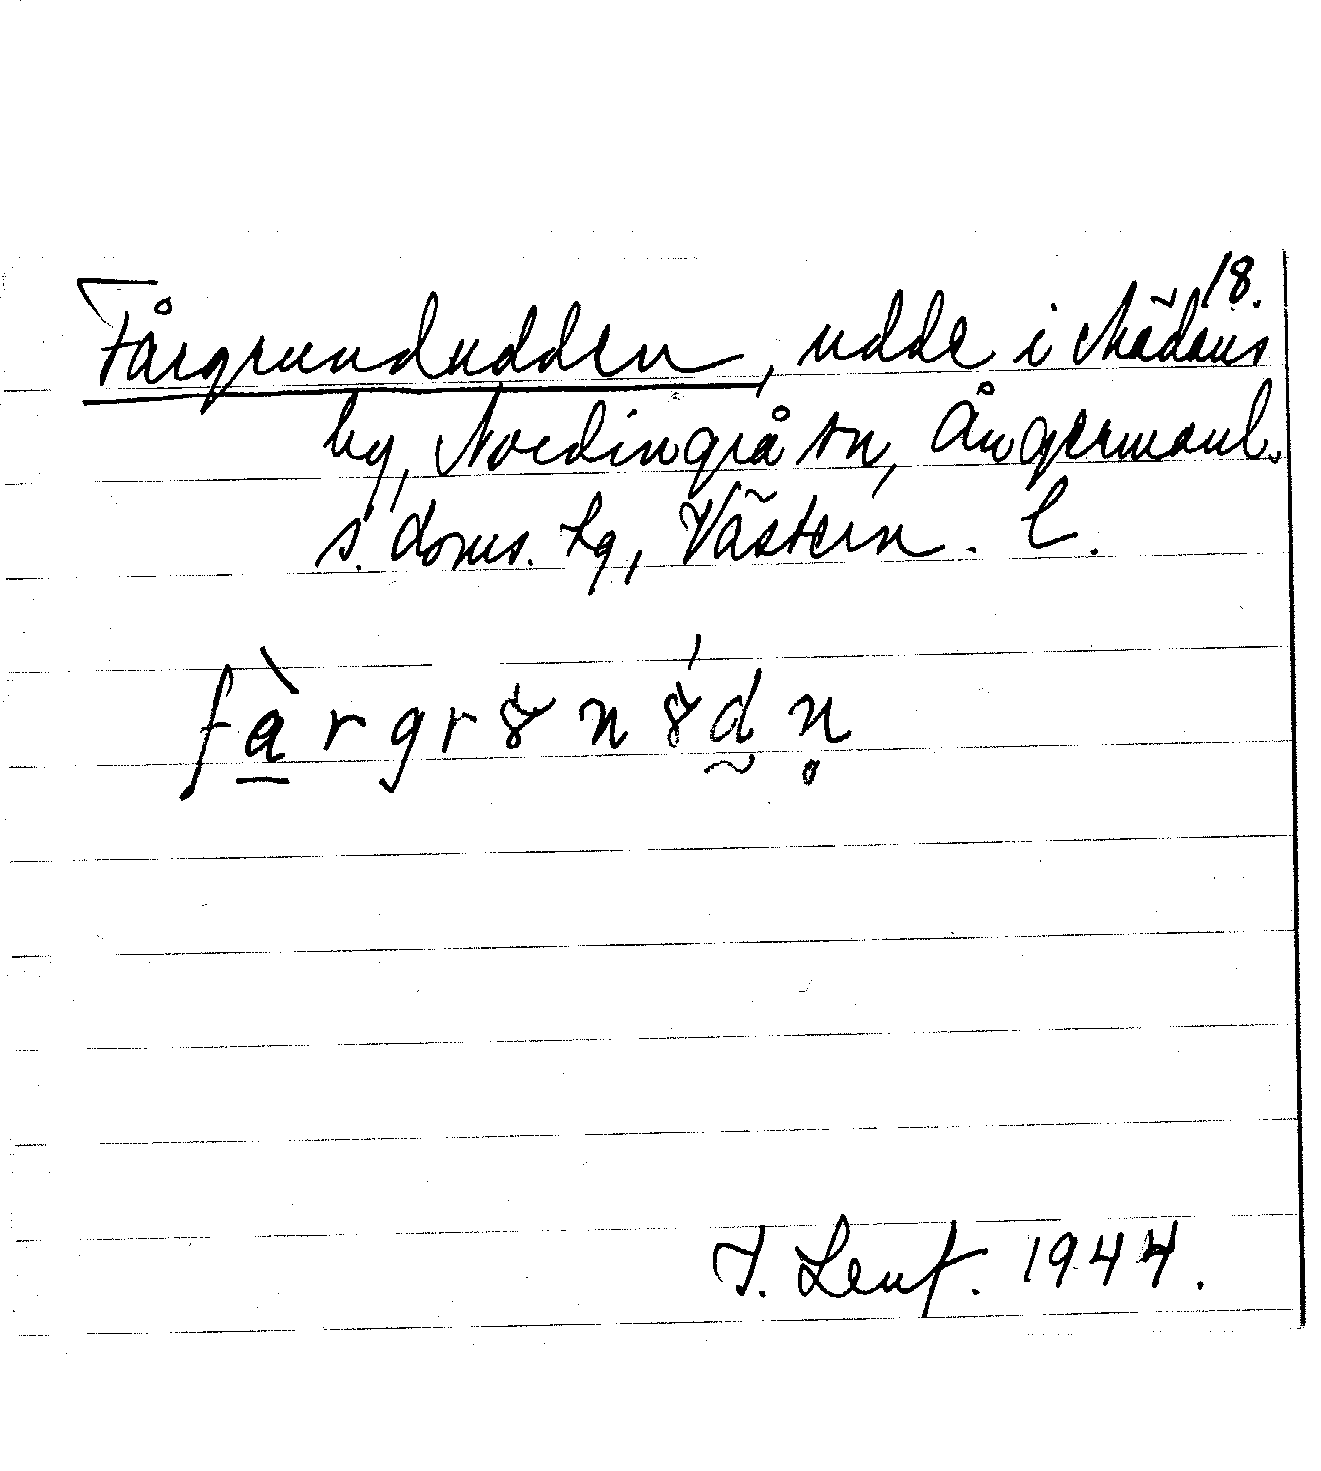 18.
Fårgrundudden, udde i Mädans
by, Nordingrå sn, Ångermanl.
s. doms. lg, Västern. l.
fàrgr n d n
J. Lenf. 1944.